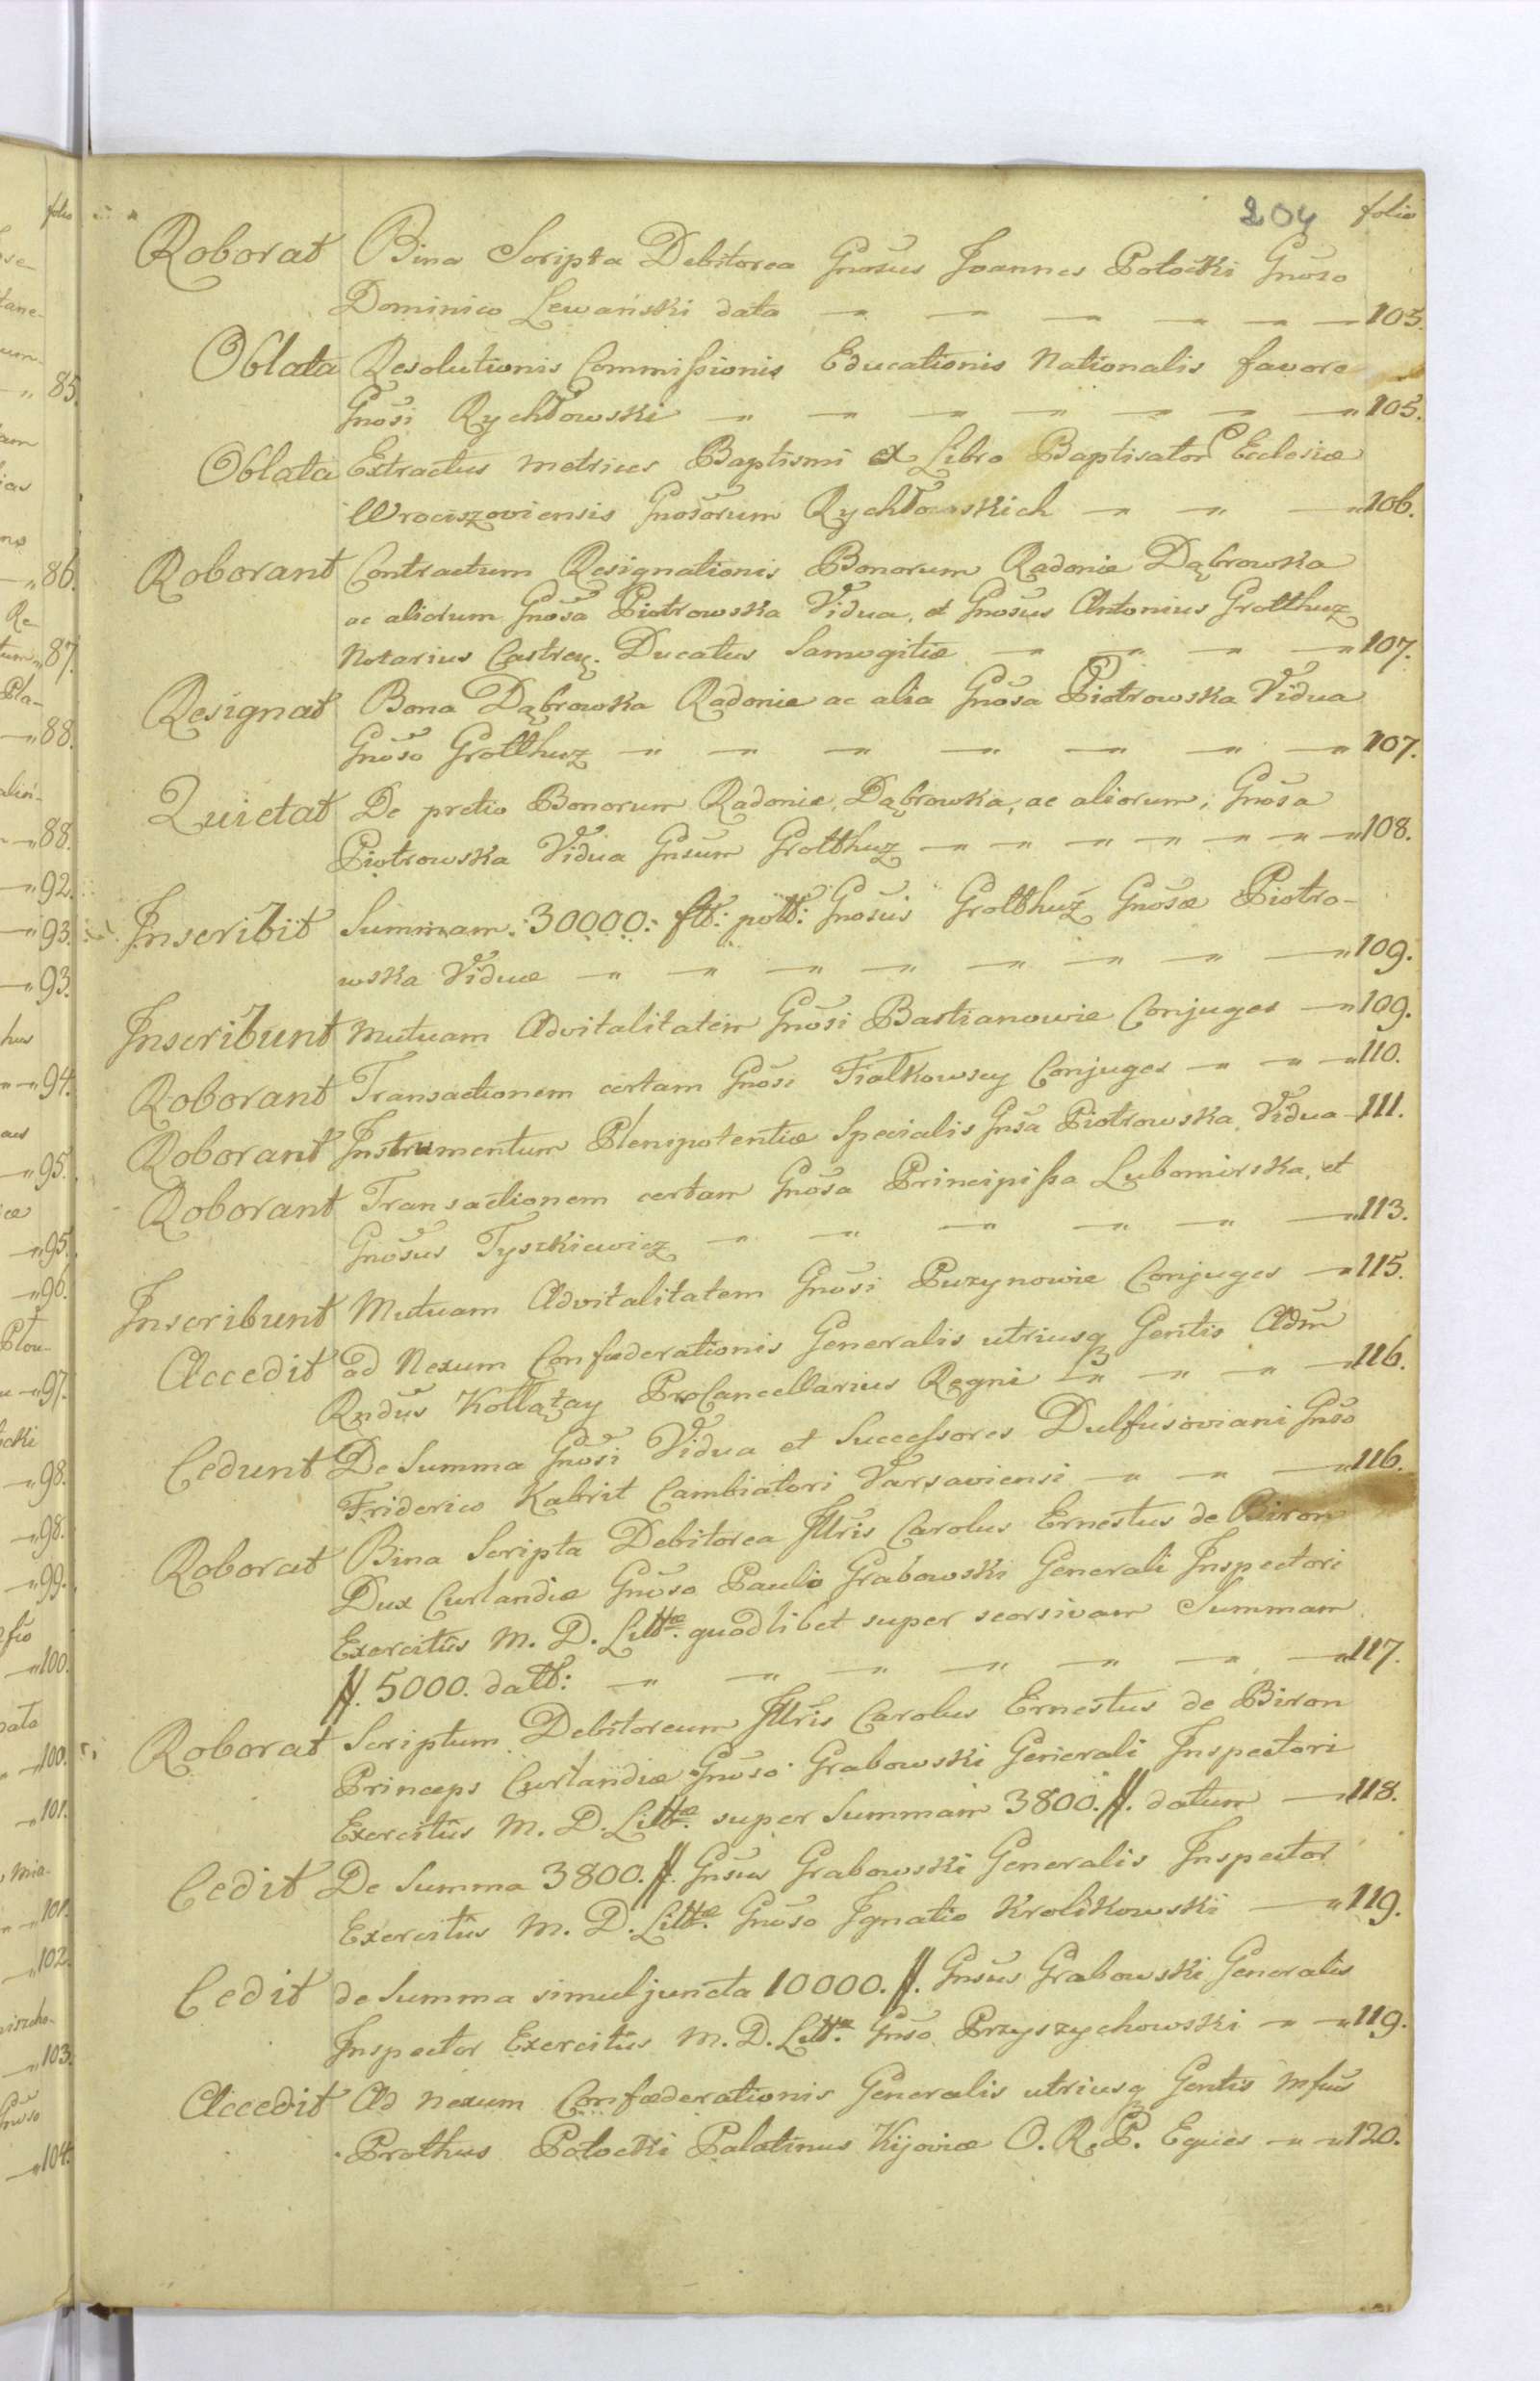 204 folio
Roborat Bina Scripta Debitorea Gnosus Joannes Potocki Gnoso
Dominico Lewański data 105.
Oblata Resolutionis Commissionis Educationis Nationalis favore
Gnosi Rychłowski 105.
Oblata Extractus Metrices Baptismi ex Libro Baptisator Ecclesiæ
Wrociszoviensis Gnosorum Rychłowskich 106.
Roborant Contractum Resignationis Bonorum Radonie Dąbrowka
ac aliorum Gnosa Piotrowska Vidua, et Gnosus Antonius Grotthuz
Notarius Castren. Ducatus Samogitiæ 107.
Resignat Bona Dąbrowka Radonie ac alia Gnosa Piotrowska Vidua
Gnoso Grotthuz 107.
Quietat De pretio Bonorum Radonie, Dąbrowka, ac aliorum, Gnosa
Piotrowska Vidua Gnsum Grotthuz 108.
Inscribit Summam 30000: flt: polt: Gnosus Grotthuz Gnosæ Piotro-
wska Viduæ 109.
Inscribunt Mutuam Advitalitatem Gnosi Bastianowie Conjuges 109.
Roborant Transactionem certam Gnosi Fiałkowscy Conjuges 110.
Roborant Instrumentum Plenipotentiæ Specialis Gnsa Piotrowska Vidua 111.
Roborant Transactionem certam Gnosa Principissa Lubomirska, et
Gnosus Tyszkiewicz 113.
Inscribunt Mutuam Advitalitatem Gnosi Puzynowie Conjuges 115.
Accedit ad Nexum Confœderationis Generalis utriusq Gentis Adm
Rndus Kołłątay ProCancellarius Regni 116.
Cedunt De Summa Gnosi Vidua et Successores Dulfusoviani Gnso
Friderico Kabrit Cambiatori Varsaviensi 116.
Roborat Bina Scripta Debitorea Illris Carolus Ernestus de Biron
Dux Curlandiæ Gnoso Paulo Grabowski Generali Inspectori
Exercitûs M. D. Littæ. quodlibet super seorsivam Summam
#. 5000. datt: 117.
Roborat Scriptum Debitoreum Illris Carolus Ernestus de Biron
Princeps Curlandiæ Gnoso Grabowski Generali Inspectori
Exercitûs M. D. Littæ. super Summam 3800. #. datum 118.
Cedit De Summa 3800. #. Gnsus Grabowski Generalis Inspector
Exercitûs M. D. Littæ. Gnoso Ignatio Krolikowski 119.
Cedit de Summa simul juncta 10000. #. Gnsus Grabowski Generalis
Inspector Exercitûs M. D. Littæ. Gnso Przyszychowski 119.
Accedit Ad Nexum Confœderationis Generalis utriusq Gentis Mfus
Prothus Potocki Palatinus Kijoviæ O. R. P. Eques 120.